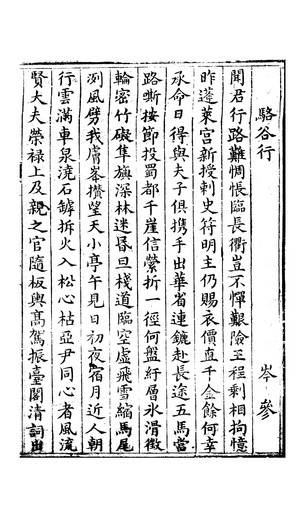 駱谷行
岑參
聞君行路難惆悵臨長衢豈不憚艱險王程剩相拘憶
昨蓬萊宮新授刺史符明主仍賜衣價直千金餘何幸
承命日得與夫子俱携手出華省連鑣赴長途五馬當
路嘶按節投蜀都千崖信縈折一徑何盤紆層氷滑徵
輪密竹礙隼旗深林迷昏旦棧道臨空虛飛雪縮馬尾
冽風劈我膚峯攅望天小亭午見日初夜宿月近人朝
行雲滿車泉澆石罅拆火入松心枯亞尹同心者風流
賢大夫榮祿上及親之官隨板輿髙駕振臺閣清詞出